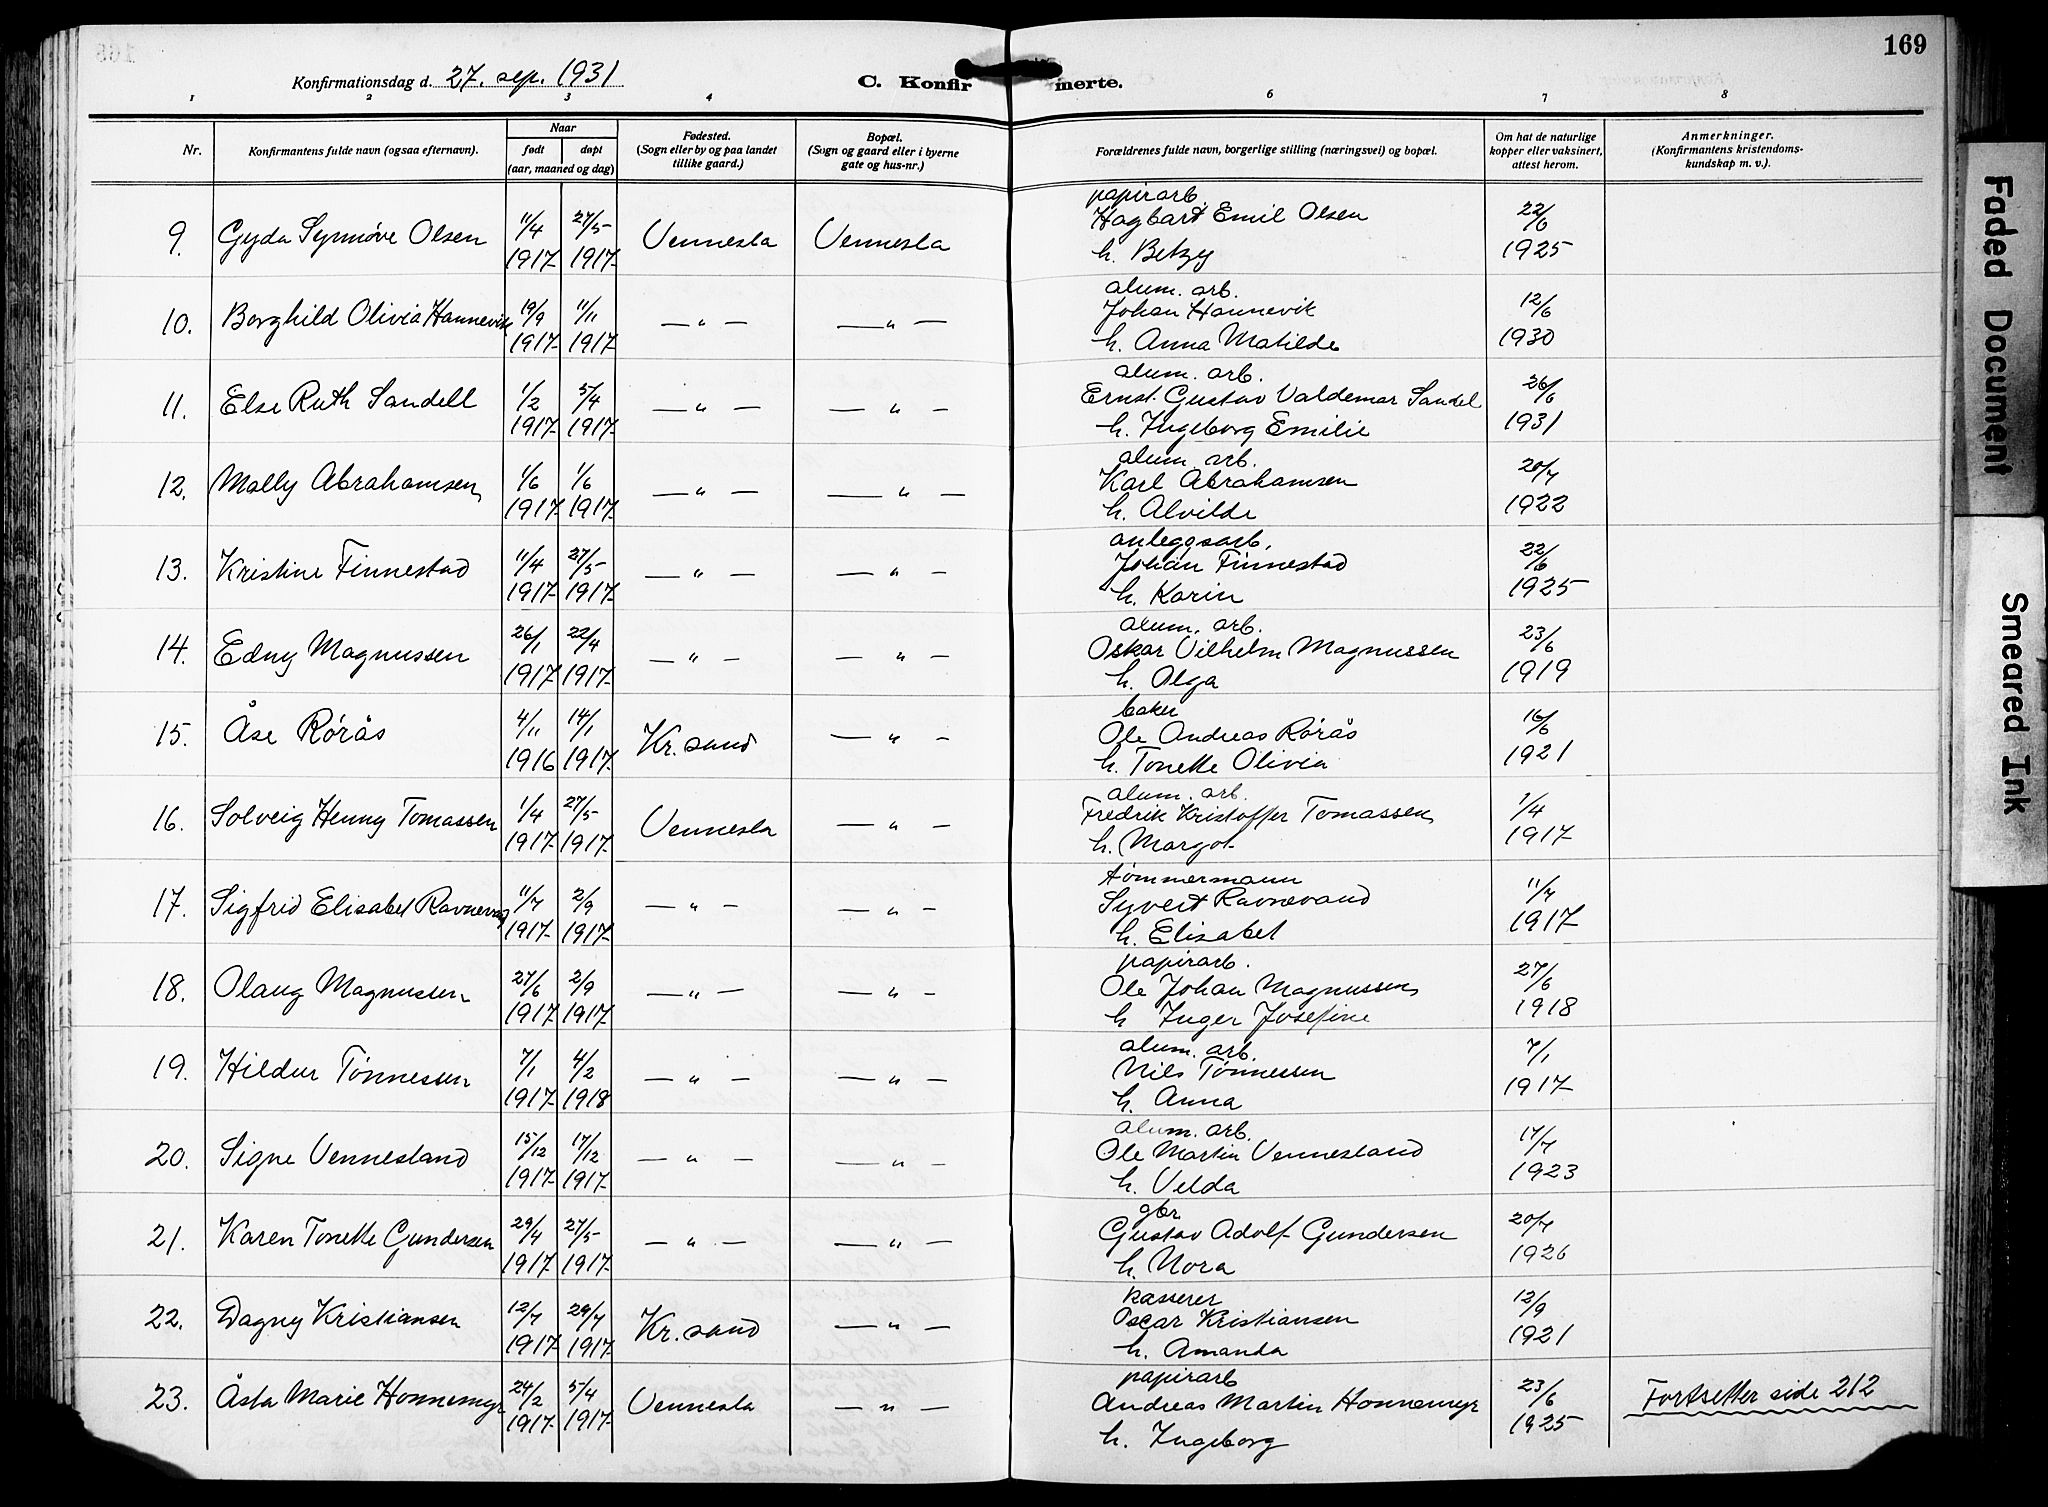 169
Konfirmationsdag d. 27. sep. 1931
C. Konfirmerte.
1 2 3 4 5 6 7 8
Nr. Konfirmantens fulde navn (ogsaa efternavn). Naar født døpt (aar, maaned og dag) Fødested. (Sogn eller by og paa landet tillike gaard.) Bopæl. (Sogn og gaard eller i byerne gate og hus-nr.) Forældrenes fulde navn, borgerlige stilling (næringsvei) og bopæl. Om hat de naturlige kopper eller vaksinert, attest herom. Anmerkninger. (Konfirmantens kristendoms-kundskap m. v.).
papirarb.
9. Gyda Synnøve Olsen 11/4 1917 27/5 1917 Vennesla Vennesla Hagbart Emil Olsen 22/6 1925
h. Betzy
alum. arb.
10. Borghild Olivia Hannevik 19/9 1917 11/11 1917 — " — — " — Johan Hannevik 12/6 1930
h. Anna Matilde
alum. arb.
11. Else Ruth Sandell 1/2 1917 5/4 1917 — " — — " — Ernst Gustav Valdemar Sandel 26/6 1931
h. Ingeborg Emilie
alum. arb.
12. Molly Abrahamsen 1/6 1917 1/6 1917 — " — — " — Karl Abrahamsen 20/7 1922
h. Alvilde
anleggsarb.
13. Kristine Finnestad 11/4 1917 27/5 1917 — " — — " — Johan Finnestad 22/6 1925
h. Karin
alum. arb.
14. Edny Magnussen 26/1 1917 22/4 1917 — " — — " — Oskar Vilhelm Magnussen 23/6 1919
h. Olga
baker
15. Åse Rørås 4/11 1916 14/1 1917 Kr. sand — " — Ole Andreas Rørås 16/6 1921
h. Tonette Olivia
alum. arb.
16. Solveig Henny Tomassen 1/4 1917 27/5 1917 Vennesla — " — Fredrik Kristoffer Tomassen 1/4 1917
h. Margot
tømmermann
17. Sigfrid Elisabet Ravnevand 11/7 1917 2/9 1917 — " — — " — Syvert Ravnevand 11/7 1917
h. Elisabet
papirarb.
18. Olaug Magnussen 27/6 1917 2/9 1917 — " — — " — Ole Johan Magnussen 27/6 1918
h Inger Josefine
alum. arb.
19. Hildur Tønnessen 7/1 1917 4/2 1918 — " — — " — Nils Tønnessen 7/1 1917
h. Anna
alum. arb.
20. Signe Vennesland 15/12 1917 17/12 1917 — " — — " — Ole Martin Vennesland 17/7 1923
h. Velda
gbr
21. Karen Tonette Gundersen 29/4 1917 27/5 1917 — " — — " — Gustav Adolf Gundersen 20/7 1926
h. Nora
kasserer
22. Dagny Kristiansen 12/7 1917 29/7 1917 Kr. sand — " — Oscar Kristiansen 12/9 1921
h. Amanda
papirarb
23. Åsta Marie Honnemyr 24/2 1917 5/4 1917 Vennesla — " — Andreas Martin Honnemyr 23/6 1925 Fortsetter side 212
h. Ingeborg
Faded Document
Smeared Ink